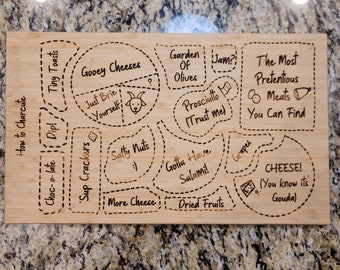 How to Charcute
Tiny Toasts
Gooey Cheeses
Just Brie
Yourself!
Garden
Of
Olives
Jam?
The Most
Pretentious
Meats
You Can Find
Prosciutto
(Trust Me)
Dip!
Choc-o-late
Sup Crackers
Salty Nuts
:)
Gotta Have
Salami!
Grapes
CHEESE!
(You know its
Gouda)
More Cheese
Dried Fruits